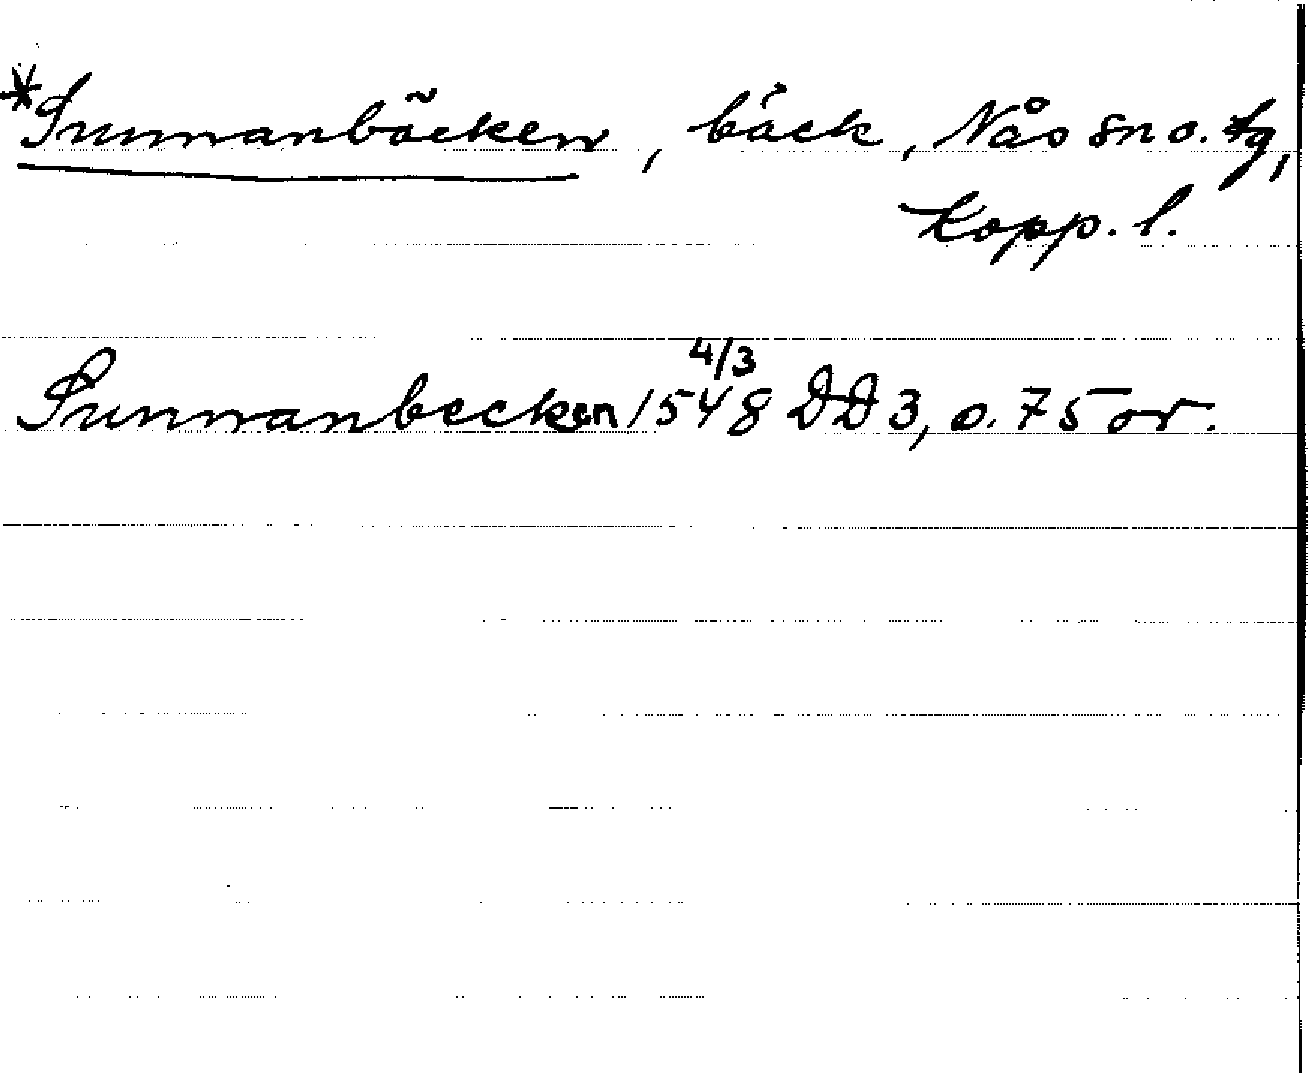 *Sunnanbäcken, bäck, Nås sn o. tg,
Kopp. l.
4/3
Sunnanbecken 1548 DD 3, o. 75 or.